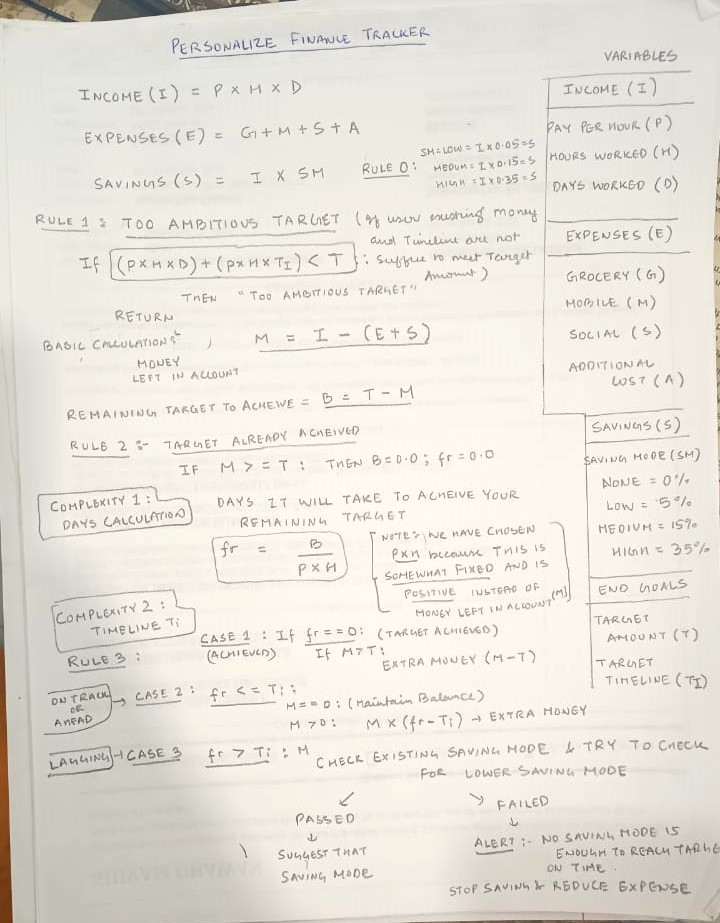 PERSONALIZE FINANCE TRACKER
INCOME (I) = P x H x D
EXPENSES (E) = G + M + S + A
SAVINGS (S) = I x SM
RULE 0: SM = LOW = I x 0.05 = S
MEDIUM = I x 0.15 = S
HIGH = I x 0.35 = S
RULE 1: TOO AMBITIOUS TARGET (If user existing money
and Timeline are not
suffice to meet Target
Amount)
If (P x H x D) + (P x H x TI) < T :
THEN "TOO AMBITIOUS TARGET"
RETURN
BASIC CALCULATIONS , M = I - (E + S)
MONEY
LEFT IN ACCOUNT
REMAINING TARGET TO ACHEIVE = B = T - M
RULE 2 :- TARGET ALREADY ACHEIVED
IF M >= T : THEN B = 0.0 ; fr = 0.0
COMPLEXITY 1 :
DAYS CALCULATION
DAYS IT WILL TAKE TO ACHEIVE YOUR
REMAINING TARGET
fr = B
P x H
NOTE :- WE HAVE CHOSEN
P x H because THIS IS
SOMEWHAT FIXED AND IS
POSITIVE INSTEAD OF
MONEY LEFT IN ACCOUNT (M)
COMPLEXITY 2 :
TIMELINE Ti
RULE 3 :
CASE 1 : If fr == 0: (TARGET ACHIEVED)
(ACHIEVED) If M > T :
EXTRA MONEY (M - T)
ON TRACK
OR
AHEAD
→ CASE 2 : fr <= Ti :
M == 0 : (Maintain Balance)
M > 0 : M x (fr - Ti) → EXTRA MONEY
LAGGING → CASE 3 fr > Ti : M
CHECK EXISTING SAVING MODE & TRY TO CHECK
FOR LOWER SAVING MODE
PASSED
↓
SUGGEST THAT
SAVING MODE
FAILED
↓
ALERT :- NO SAVING MODE IS
ENOUGH TO REACH TARGE
ON TIME.
STOP SAVING & REDUCE EXPENSE
VARIABLES
INCOME (I)
PAY PER HOUR (P)
HOURS WORKED (H)
DAYS WORKED (D)
EXPENSES (E)
GROCERY (G)
MOBILE (M)
SOCIAL (S)
ADDITIONAL
COST (A)
SAVINGS (S)
SAVING MODE (SM)
NONE = 0%
LOW = 5%
MEDIUM = 15%
HIGH = 35%
END GOALS
TARGET
AMOUNT (T)
TARGET
TIMELINE (TI)